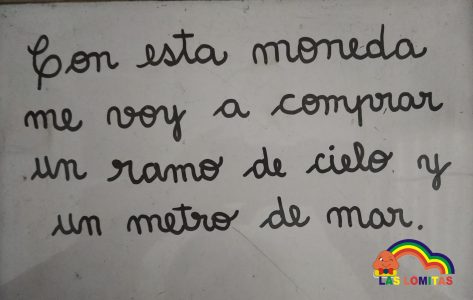 Con esta moneda
me voy a comprar
un ramo de cielo y
un metro de mar.
LAS LOMITAS